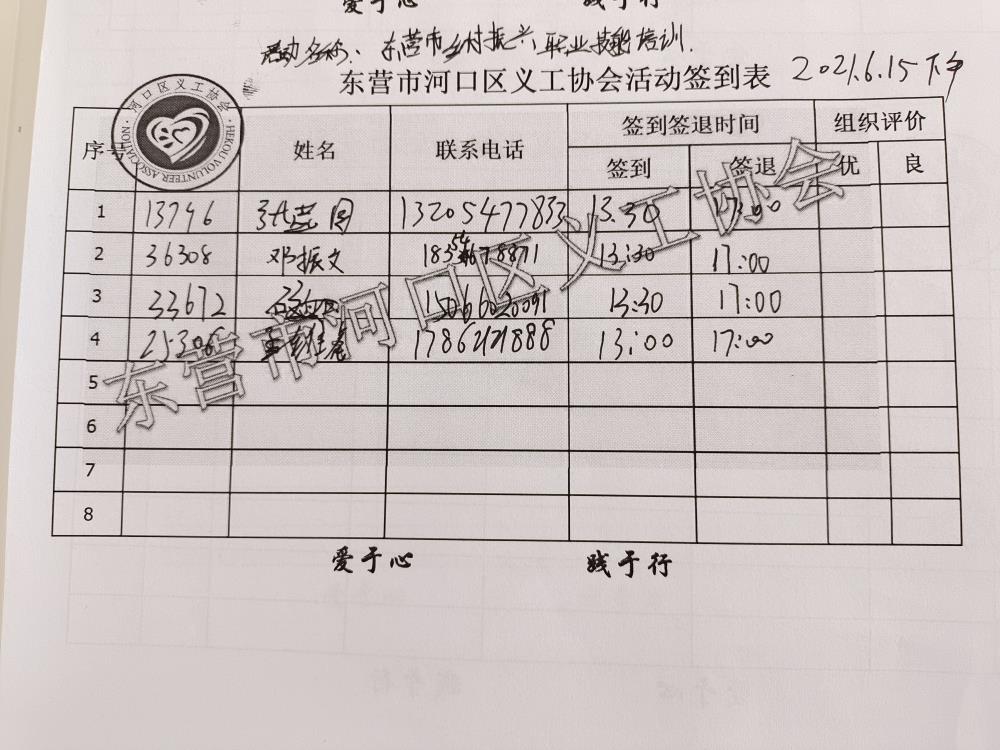 爱于心 践于行
活动名称：东营市乡村振兴职业技能培训.
东营市河口区义工协会活动签到表 2021.6.15下午
河口区义工协会
HEKOU VOLUNTEER ASSOCIATION
序号 姓名 联系电话 签到签退时间 组织评价
签到 签退 优 良
1 13796 13205477833 13:30 17:00
2 36308 邓振文 18354678871 13:30 17:00
3 33672 15066020091 13:30 17:00
4 25306 17862121888 13:00 17:00
5
6
7
8
东营市河口区义工协会
爱于心 践于行